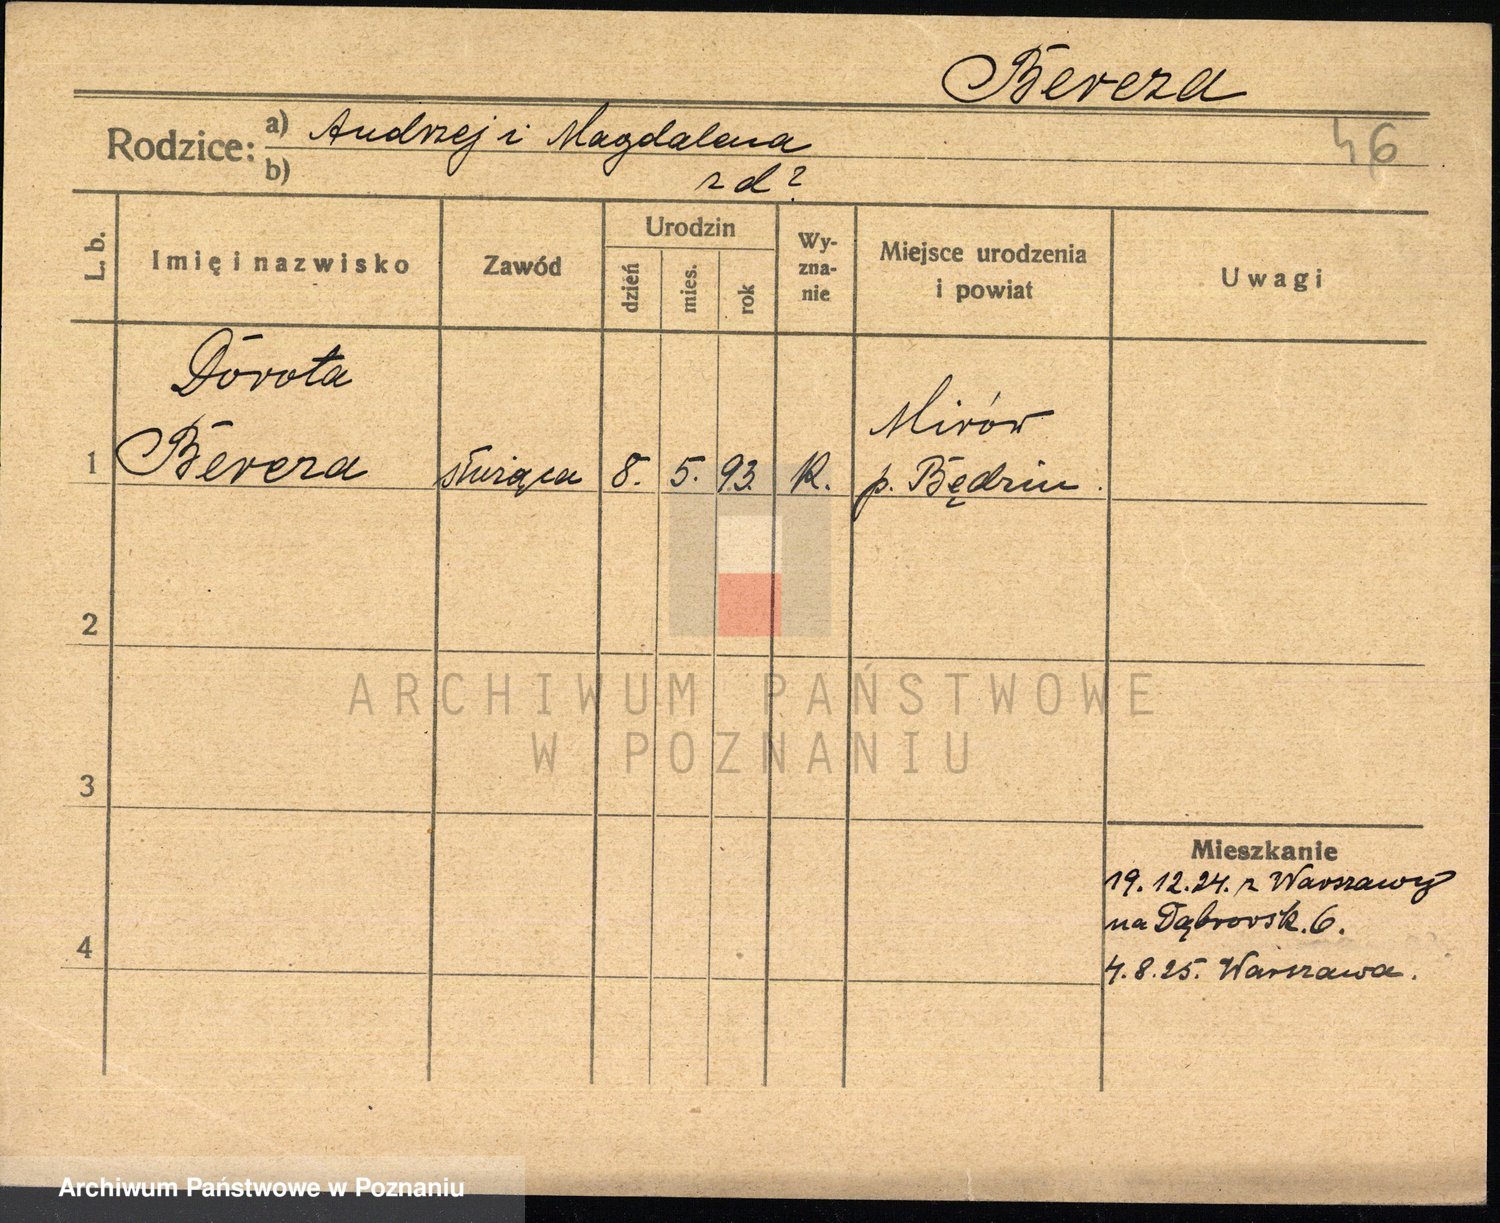 Bereza
Rodzice: a) Andrzej i Magdalena
46
b) z d?
L. b.
Imię i nazwisko
Zawód
Urodzin
dzień
mies.
rok
Wy-
zna-
nie
Miejsce urodzenia
i powiat
Uwagi
Dorota
Mirów
1 Bereza służąca 8. 5. 93. K. p. Będzin.
2
ARCHIWUM PAŃSTWOWE
W POZNANIU
3
Mieszkanie
19.12.24. z Warszawy
na Dąbrowsk. 6.
4
4.8.25. Warszawa.
Archiwum Państwowe w Poznaniu